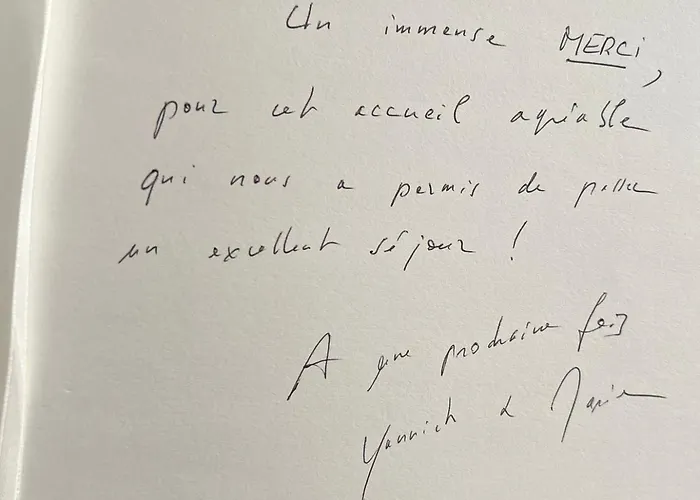 Un immense MERCI,
pour cet accueil agréable
qui nous a permis de passer
un excellent séjour !
A une prochaine fois
Yannick &